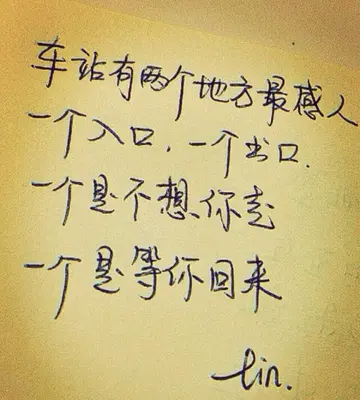 车站有两个地方最感人
一个入口，一个出口.
一个是不想你走
一个是等你回来
lin.